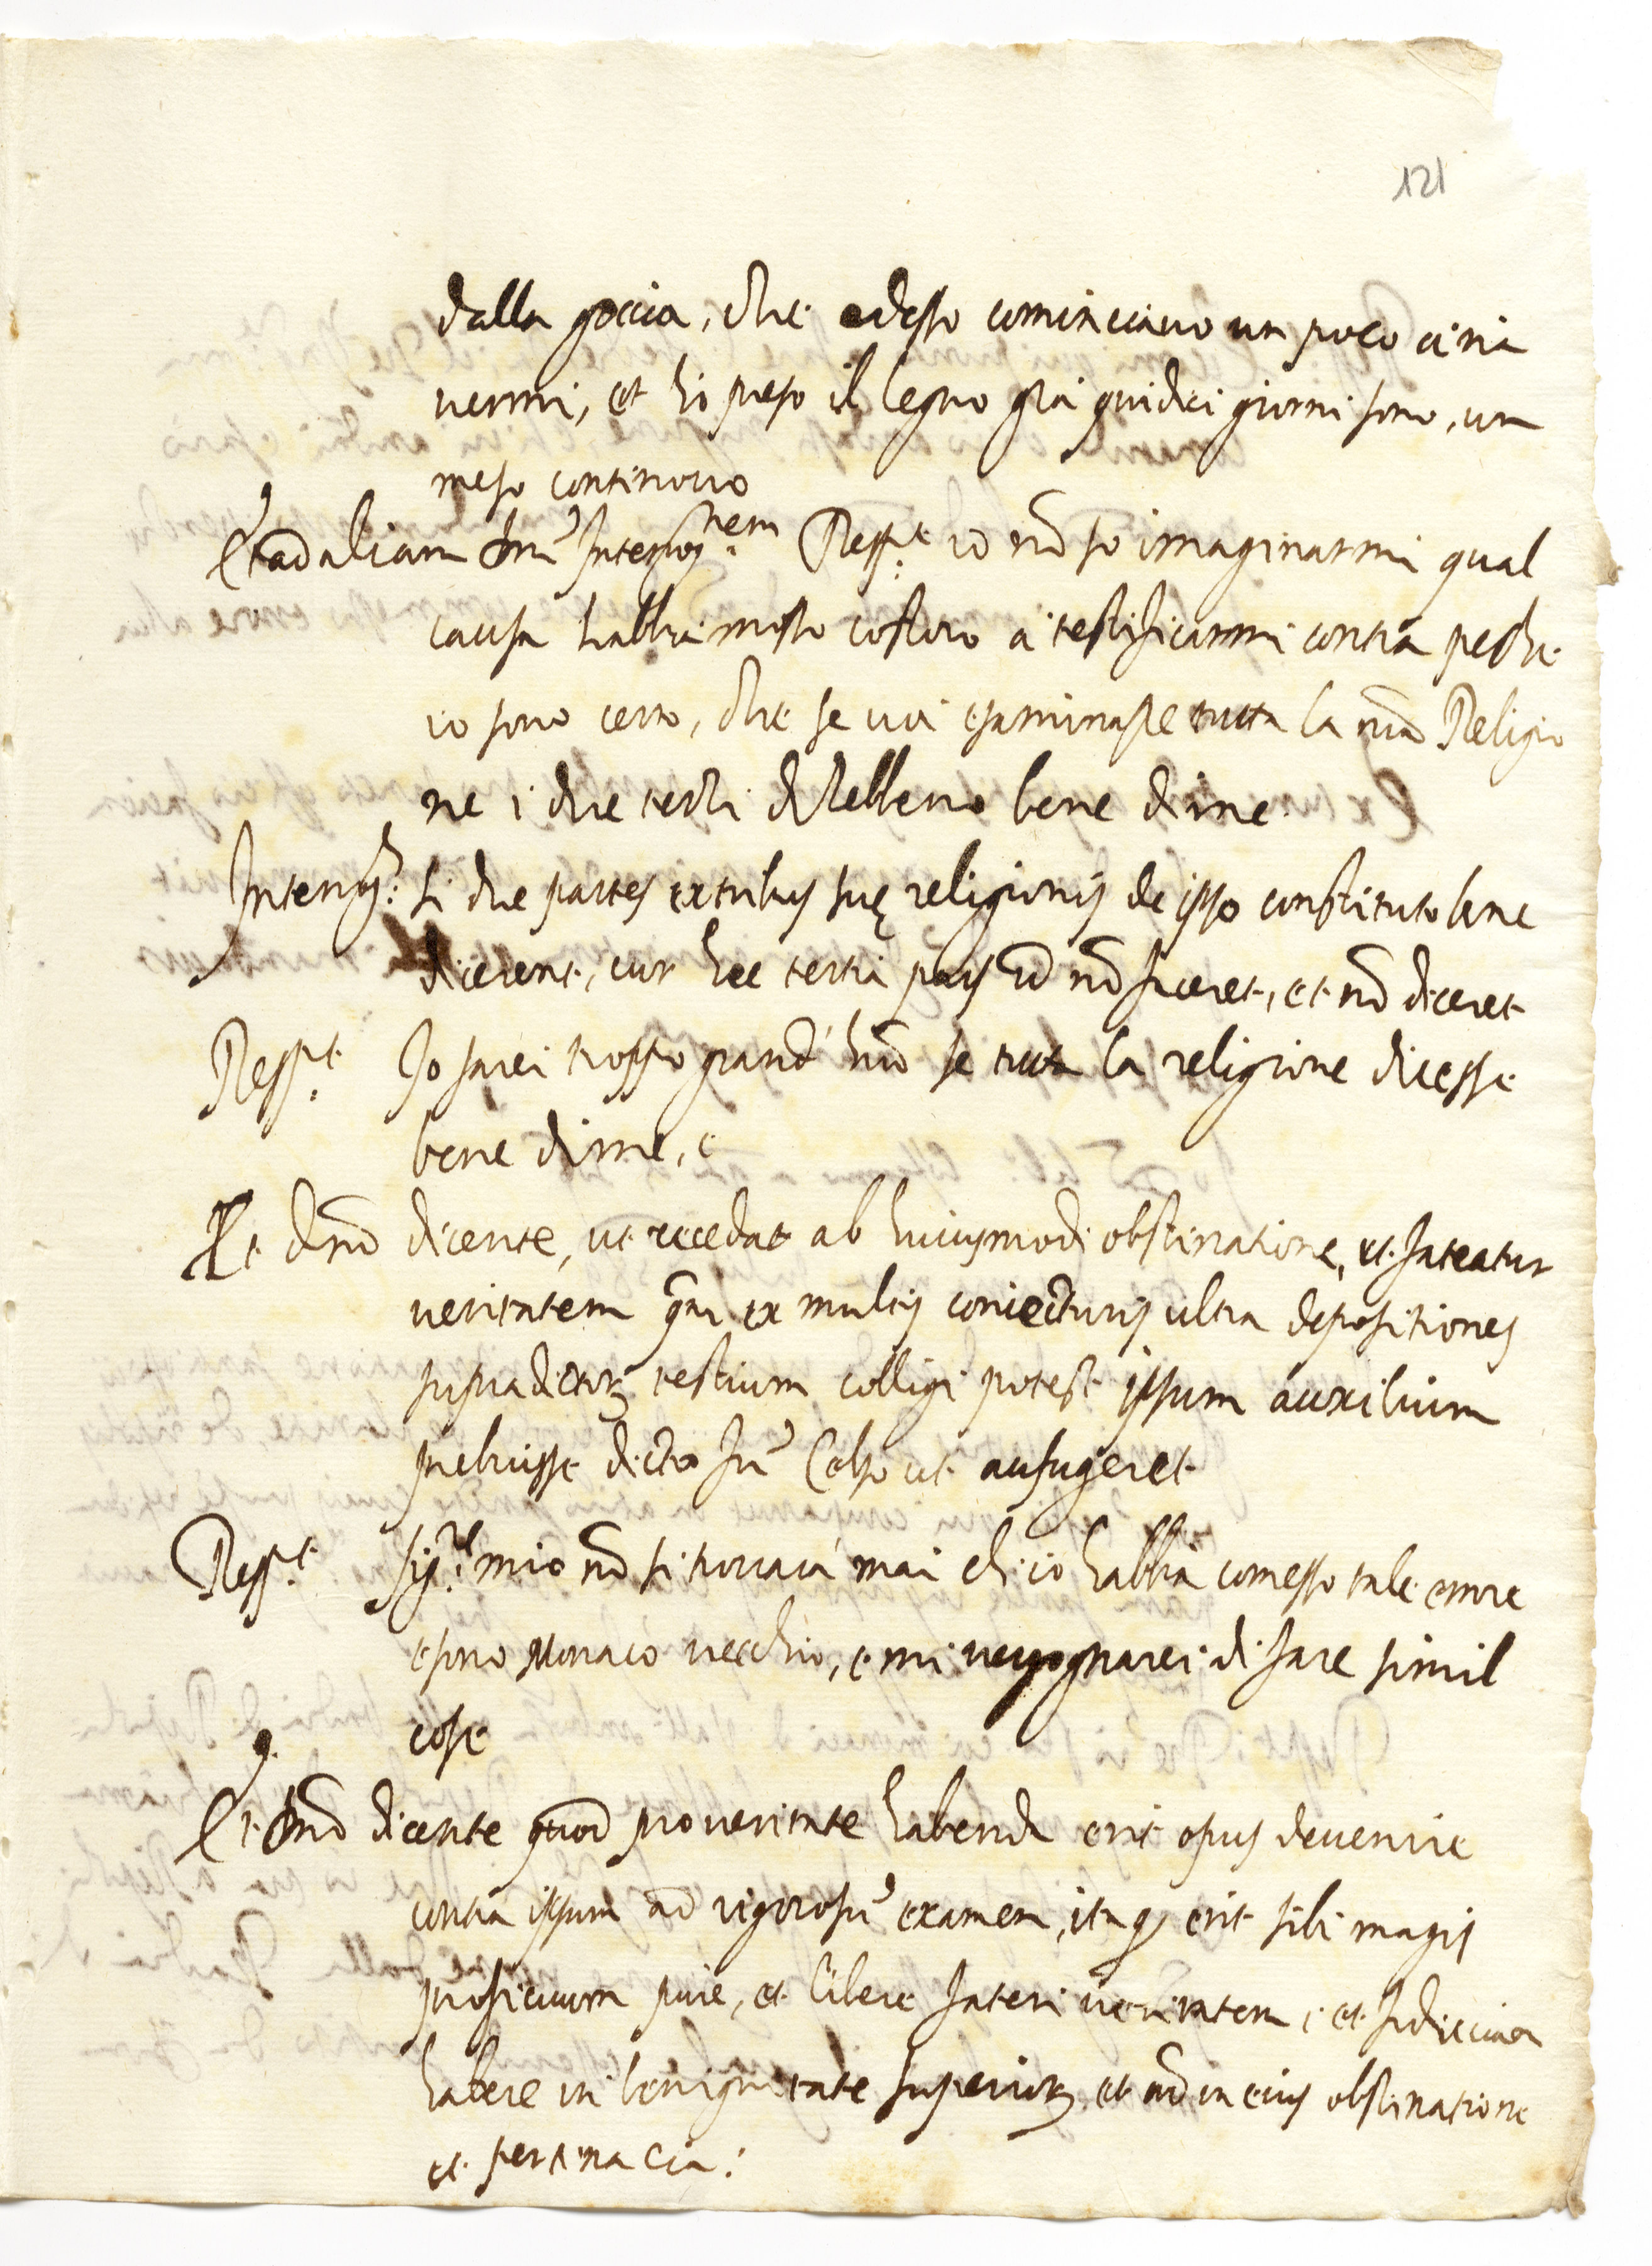 121
dalla goccia, che adesso cominciavo un poco à ria
vermi, et hò preso il legno già quidici giorni sono, un
mese continovo
Et ad aliam D. Interrog.nem Resp.t io nõ so imaginarmi qual
causa habbia mosso costoro à testificarmi contra perche
io sono certo, che se voi esaminaste tutta la mia Religio
ne i due terzi direbbeno bene di me
Interrog.s si due partes ex tribus suę religionis de ipso constituto bene
dicerent, cur hec tertia pars id nõ faceret, et nõ diceret
Resp.t Io sarei troppo grand' huõ se tutta la religione dicesse
bene di me, e
Et Dnõ dicente, ut recedat ab huiusmodi obstinatione, et fateatur
veritatem qm̃ ex multis coniecturis ultra depositiones
supradictorũ testium colligi potest ipsum auxilium
prebuisse dicto frī Celso ut aufugeret
Resp.t Sig.re mio nõ si trovará mai ch'io habbia comesso tale errore
e sono Monaco vecchio, e mi vergognarei di fare simil
cose
Et Dnõ dicente quod pro veritate habenda erit opus devenire
contra ipsum ad rigorosũ examen, itaq3 erit sibi magis
proficuum pure, et libere fateri veritatem, et fiduciam
habere in benignitate superiorũ, et nõ in eius obstinatione
et pertinacia: